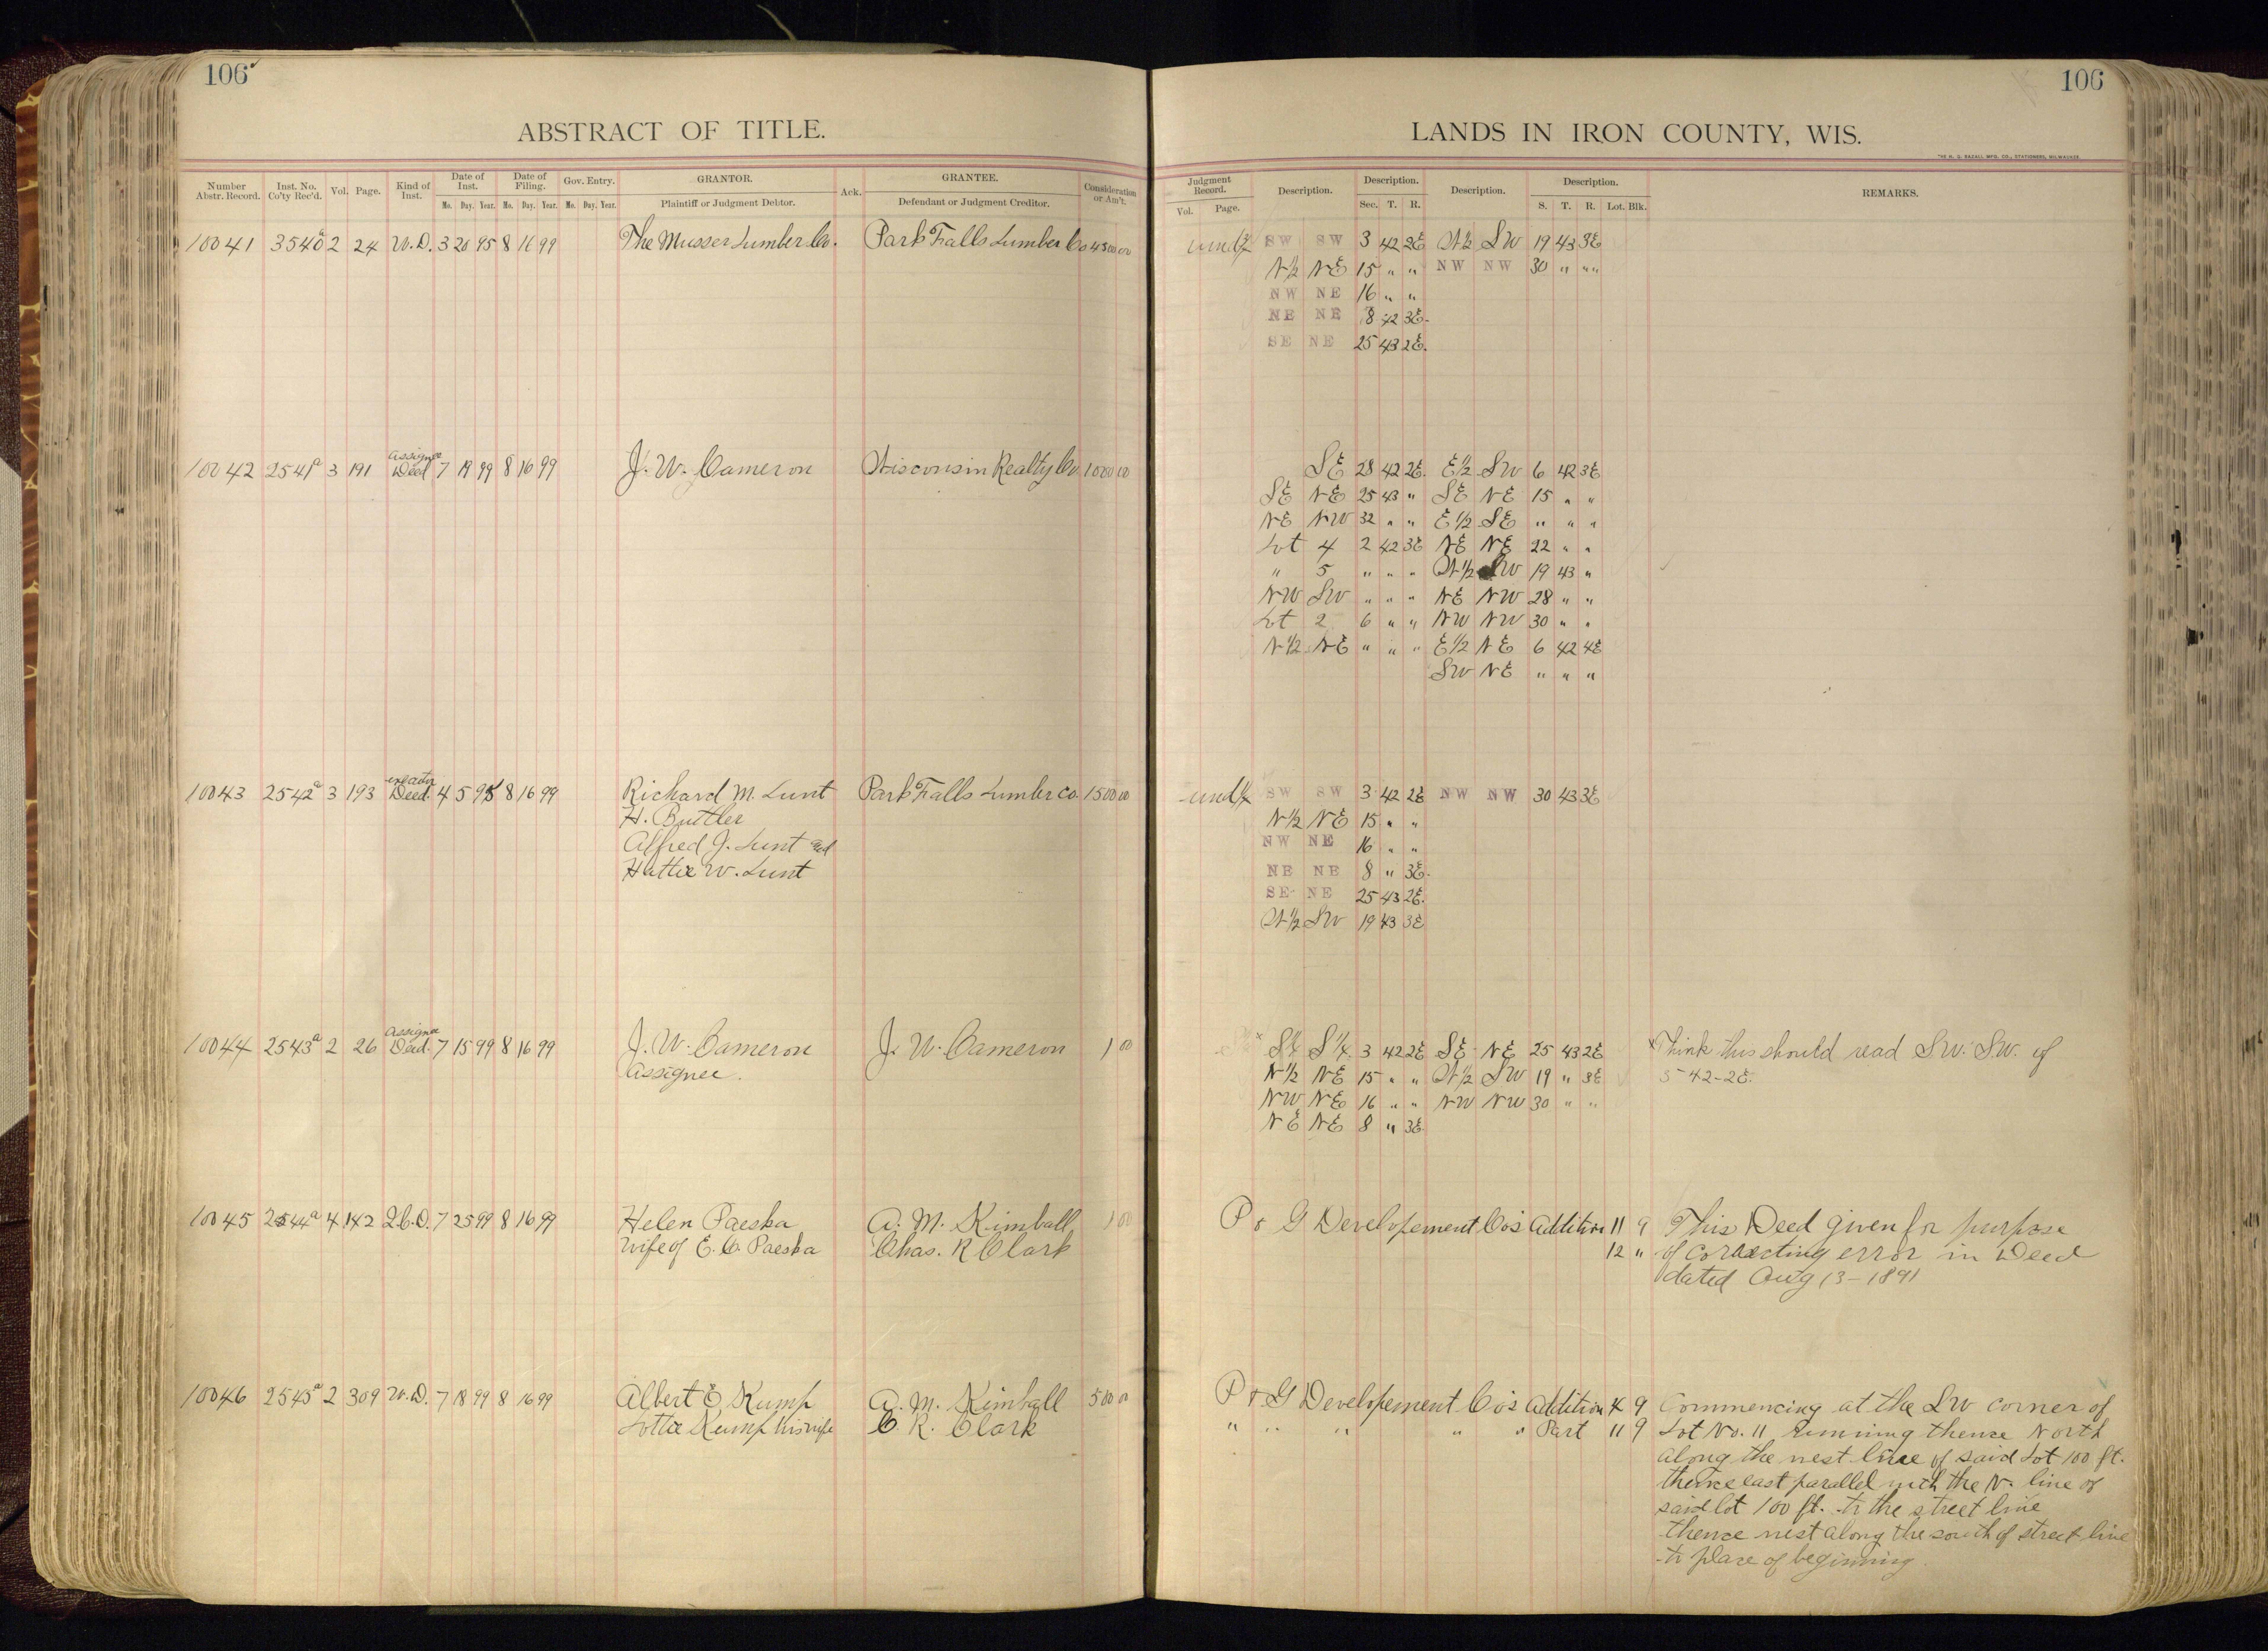 106
106
ABSTRACT OF TITLE.
LANDS IN IRON COUNTY, WIS.
Number Abstr. Record. Inst. No. Co'ty Rec'd. Vol. Page. Kind of Inst. Date of Inst. Mo. Day. Year. Date of Filing. Mo. Day. Year. Gov. Entry. Mo. Day. Year. GRANTOR. Plaintiff or Judgment Debtor. Ack. GRANTEE. Defendant or Judgment Creditor. Consideration or Am't.
Judgment Record. Vol. Page. Description. Description. Sec. T. R. Description. Description. S. T. R. Lot. Blk. REMARKS.
10041 3540a 2 24 W.D. 3 20 95 8 16 99 The Musser Lumber Co. Park Falls Lumber Co 4500 00
SW SW 3 42 2E W½ SW 19 43 3E
N½ NE 15 " " NW NW 30 " " "
NW NE 16 " "
NE NE 8 42 3E.
SE NE 25 43 2E.
10042 2541a 3 191 Assignee Deed 7 19 99 8 16 99 J. W. Cameron Wisconsin Realty Co. 1000 00
SE 28 42 2E. E½ SW 6 42 3E
SE NE 25 43 " SE NE 15 " "
NE NW 32 " " E½ SE " " "
Lot 4 2 42 3E NE NE 22 " "
" 5 " " " W½ SW 19 43 "
NW SW " " " NE NW 28 " "
Lot 2 6 " " NW NW 30 " "
N½ NE " " " E½ NE 6 42 4E
SW NE " " "
10043 2542a 3 193 Deed. 4 5 95 8 16 99 Richard M. Lunt Park Falls Lumber Co. 1500 00
H. Buttler
Alfred J. Lunt and
Hattie W. Lunt
SW SW 3 42 2E NW NW 30 43 3E
N½ NE 15 " "
NW NE 16 " "
NE NE 8 " 3E.
SE NE 25 43 2E.
W½ SW 19 43 3E
10044 2543a 2 26 Assignee Deed. 7 15 99 8 16 99 J. W. Cameron J. W. Cameron 1 00
Assignee.
x S¼ S¼ 3 42 2E SE NE 25 43 2E x Think this should read SW. SW. of
N½ NE 15 " " W½ SW 19 " 3E 3-42-2E.
NW NE 16 " " NW NW 30 " "
NE NE 8 " 3E.
10045 2544a 4 142 Q.C.D. 7 25 99 8 16 99 Helen Paeska A. M. Kimball 1 00
wife of E. C. Paeska Chas. R Clark
P & G Developement Co's Addition 11 9 This Deed given for purpose
12 " of correcting error in Deed
dated Aug 13-1891
10046 2545a 2 309 W.D. 7 18 99 8 16 99 Albert E Kump A. M. Kimball 500 00
Lottie Kump his wife C. R. Clark
P & G Developement Co's Addition 4 9 Commencing at the SW corner of
" " " " " Part 11 9 Lot No. 11 running thence North
along the west line of said Lot 100 ft.
thence east parallel with the N. line of
said lot 100 ft. to the street line
thence west along the south of street line
to place of beginning.